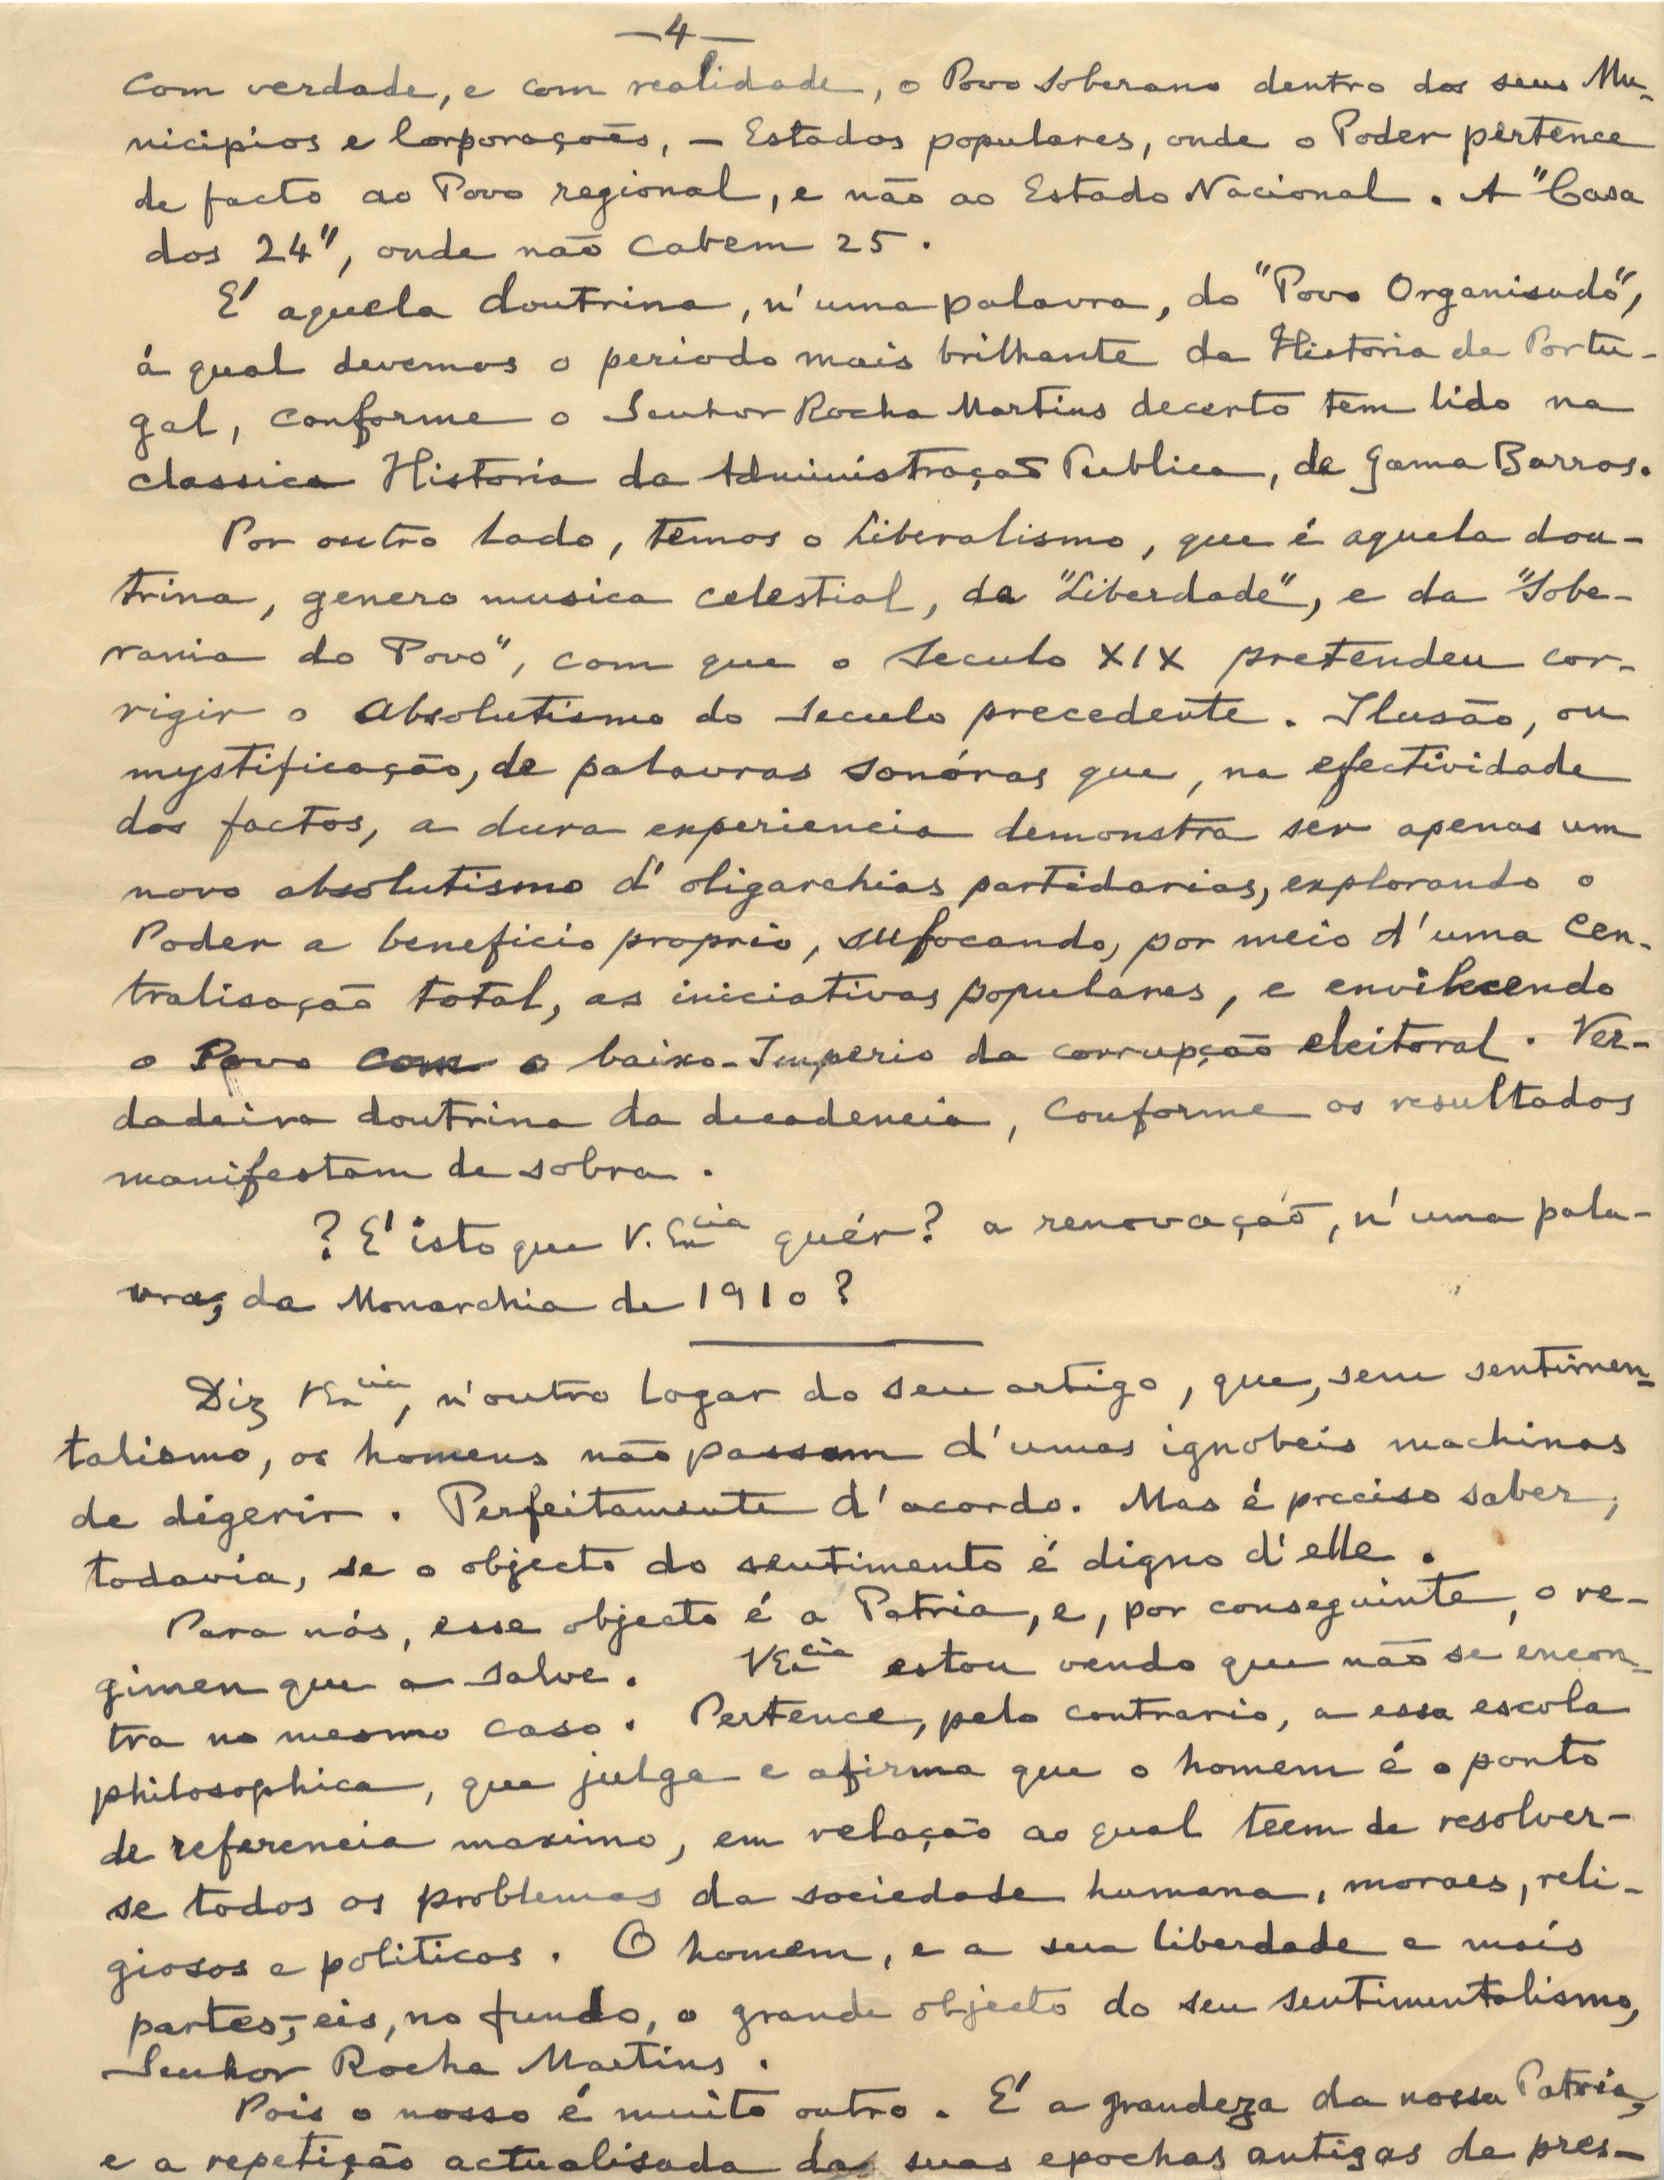 —4—
com verdade, e com realidade, o Povo soberano dentro dos seus Mu-
nicipios e Corporações, — Estados populares, onde o Poder pertence
de facto ao Povo regional, e não ao Estado Nacional. A "Casa
dos 24", onde não cabem 25.
E' aquela doutrina, n'uma palavra, do "Povo Organisado",
á qual devemos o periodo mais brilhante da Historia de Portu-
gal, conforme o Senhor Rocha Martins decerto tem lido na
classica Historia da Administração Publica, de Gama Barros.
Por outro lado, temos o Liberalismo, que é aquela dou-
trina, genero musica celestial, da "Liberdade", e da "Sobe-
rania do Povo", com que o seculo XIX pretendeu cor-
rigir o Absolutismo do seculo precedente. Ilusão, ou
mystificação, de palavras sonóras que, na efectividade
dos factos, a dura experiencia demonstra ser apenas um
novo absolutismo d'oligarchias partidarias, explorando o
Poder a beneficio proprio, sufocando, por meio d'uma cen-
tralisação total, as iniciativas populares, e envilecendo
o Povo com o baixo-Imperio da corrupção eleitoral. Ver-
dadeira doutrina da decadencia, conforme os resultados
manifestam de sobra.
? E' isto que V. Excia quér? a renovação, n'uma pala-
vra, da Monarchia de 1910?
Diz VExcia, n'outro logar do seu artigo, que, sem sentimen-
talismo, os homens não passam d'umas ignobeis machinas
de digerir. Perfeitamente d'acordo. Mas é preciso saber,
todavia, se o objecto do sentimento é digno d'elle.
Para nós, esse objecto é a Patria, e, por conseguinte, o re-
gimen que a salve. VExcia estou vendo que não se encon-
tra no mesmo caso. Pertence, pelo contrario, a essa escola
philosophica, que julga e afirma que o homem é o ponto
de referencia maximo, em relação ao qual teem de resolver-
se todos os problemas da sociedade humana, moraes, reli-
giosos e politicos. O homem, e a sua liberdade e mais
partes, — eis, no fundo, o grande objecto do seu sentimentalismo,
Senhor Rocha Martins.
Pois o nosso é muito outro. E' a grandeza da nossa Patria,
e a repetição actualisada das suas epochas antigas de pres-